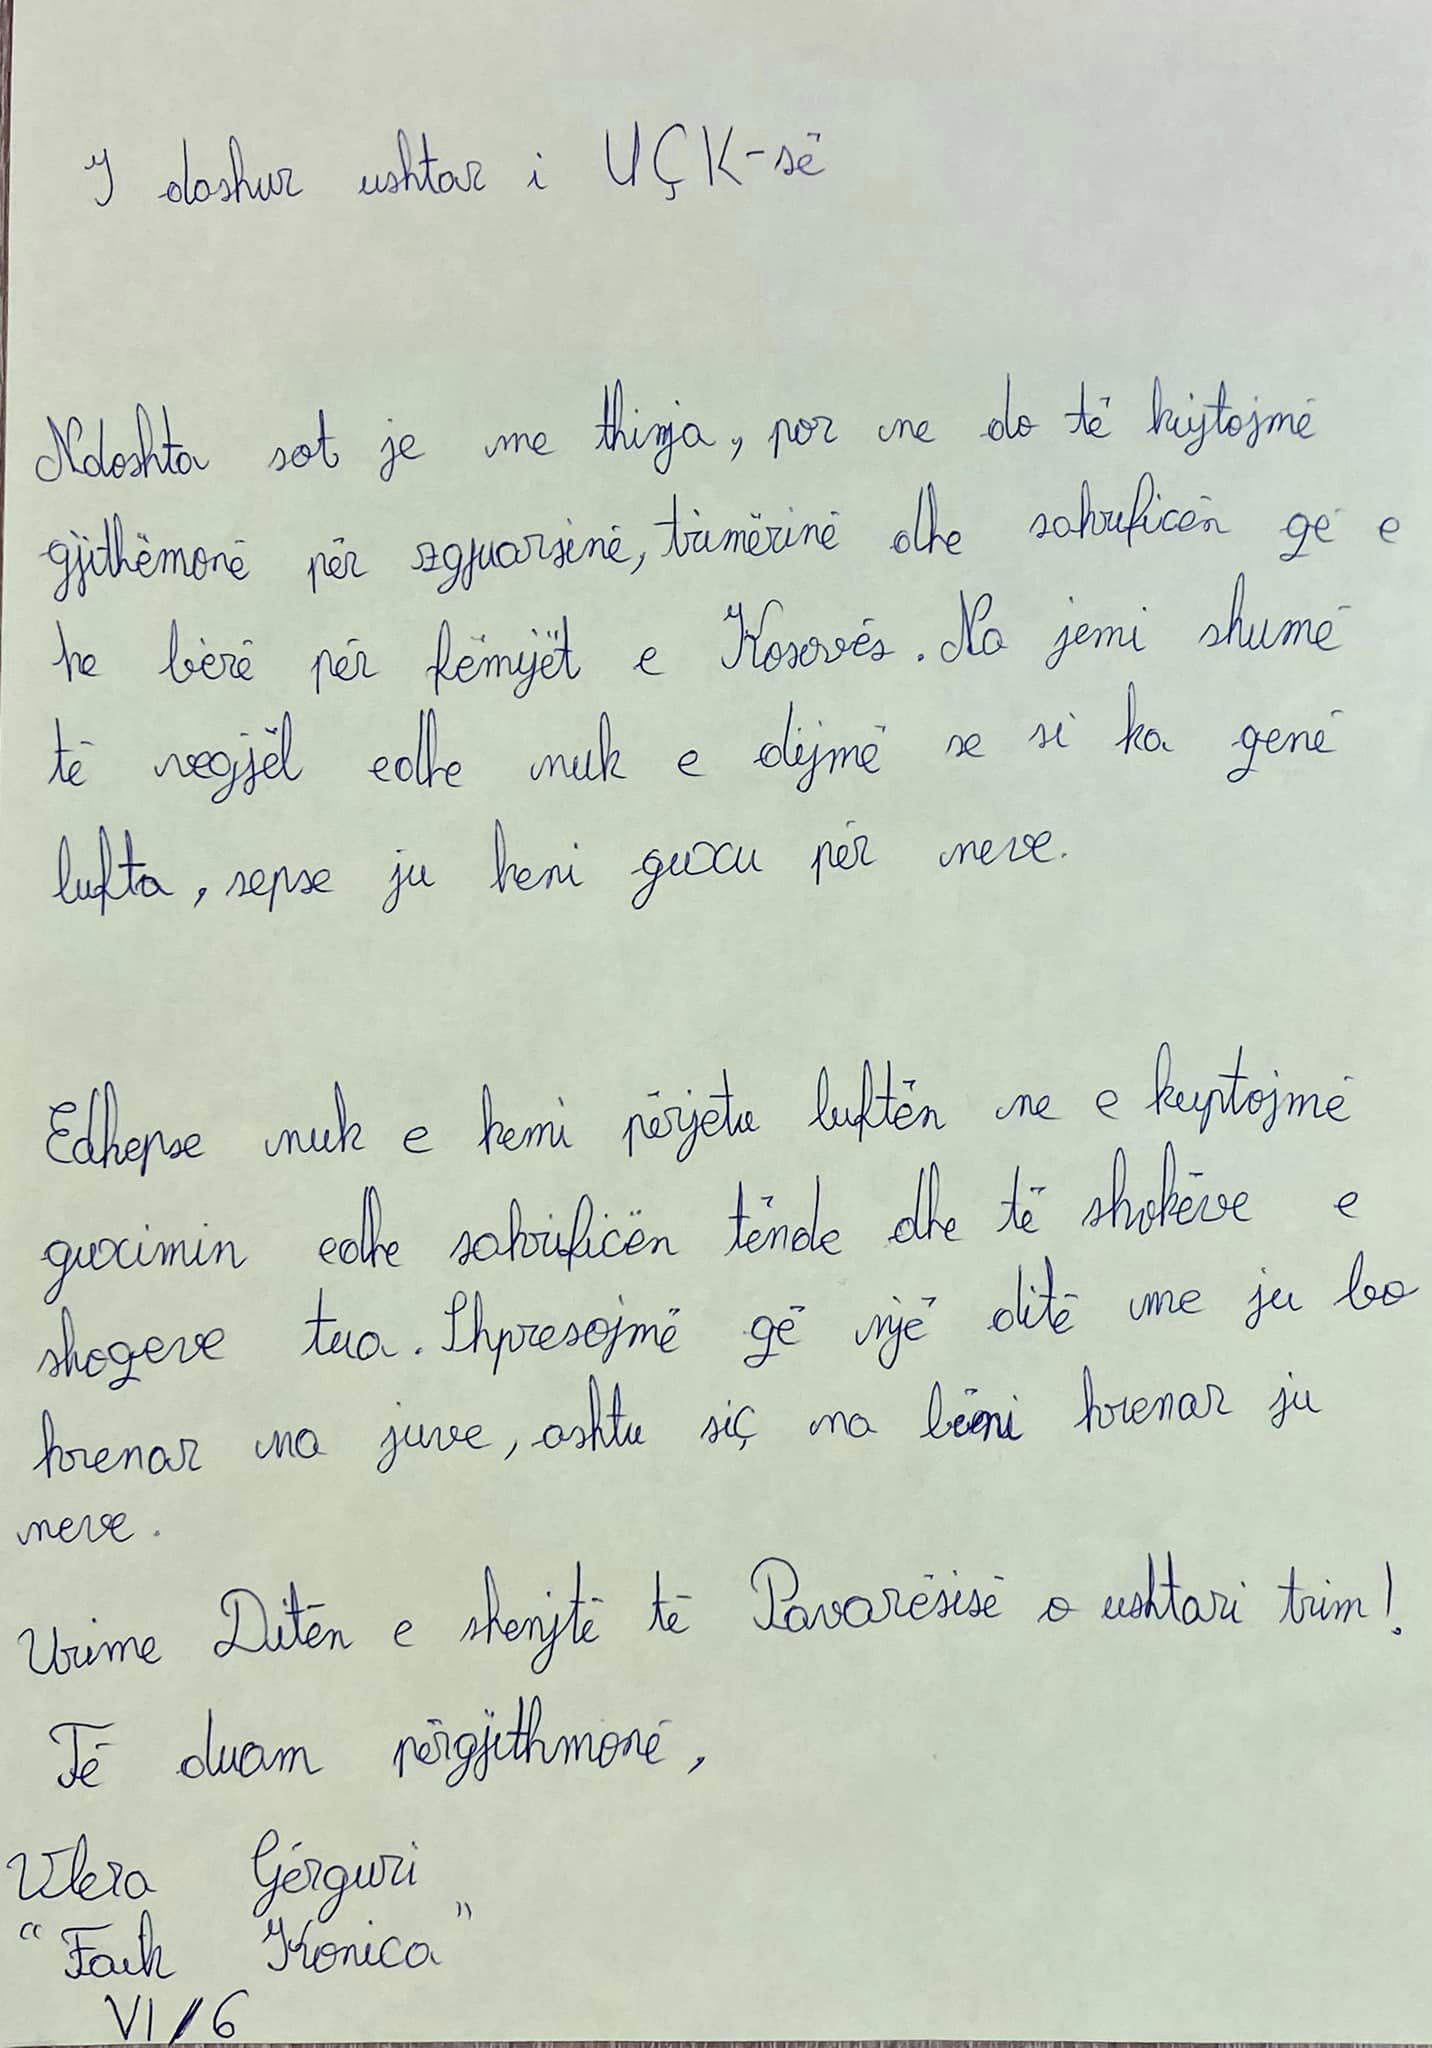 I dashur ushtar i UÇK-së
Ndoshta sot je me thinja, por ne do të kujtojmë
gjithëmonë për zgjuarsinë, trimërinë dhe sakrificën që e
ke bërë për fëmijët e Kosovës. Na jemi shumë
të vegjël edhe nuk e dijmë se si ka qenë
lufta, sepse ju keni guxu për neve.
Edhepse nuk e kemi përjetu luftën ne e kuptojmë
guximin edhe sakrificën tënde dhe të shokëve e
shoqeve tua. Shpresojmë që një ditë me ju bo
krenar na juve, ashtu siç na bëni krenar ju
neve.
Urime Ditën e shenjtë të Pavarësisë o ushtari trim!
Të duam përgjithmonë,
Vlera Gërguri
"Faik Konica"
VI/6